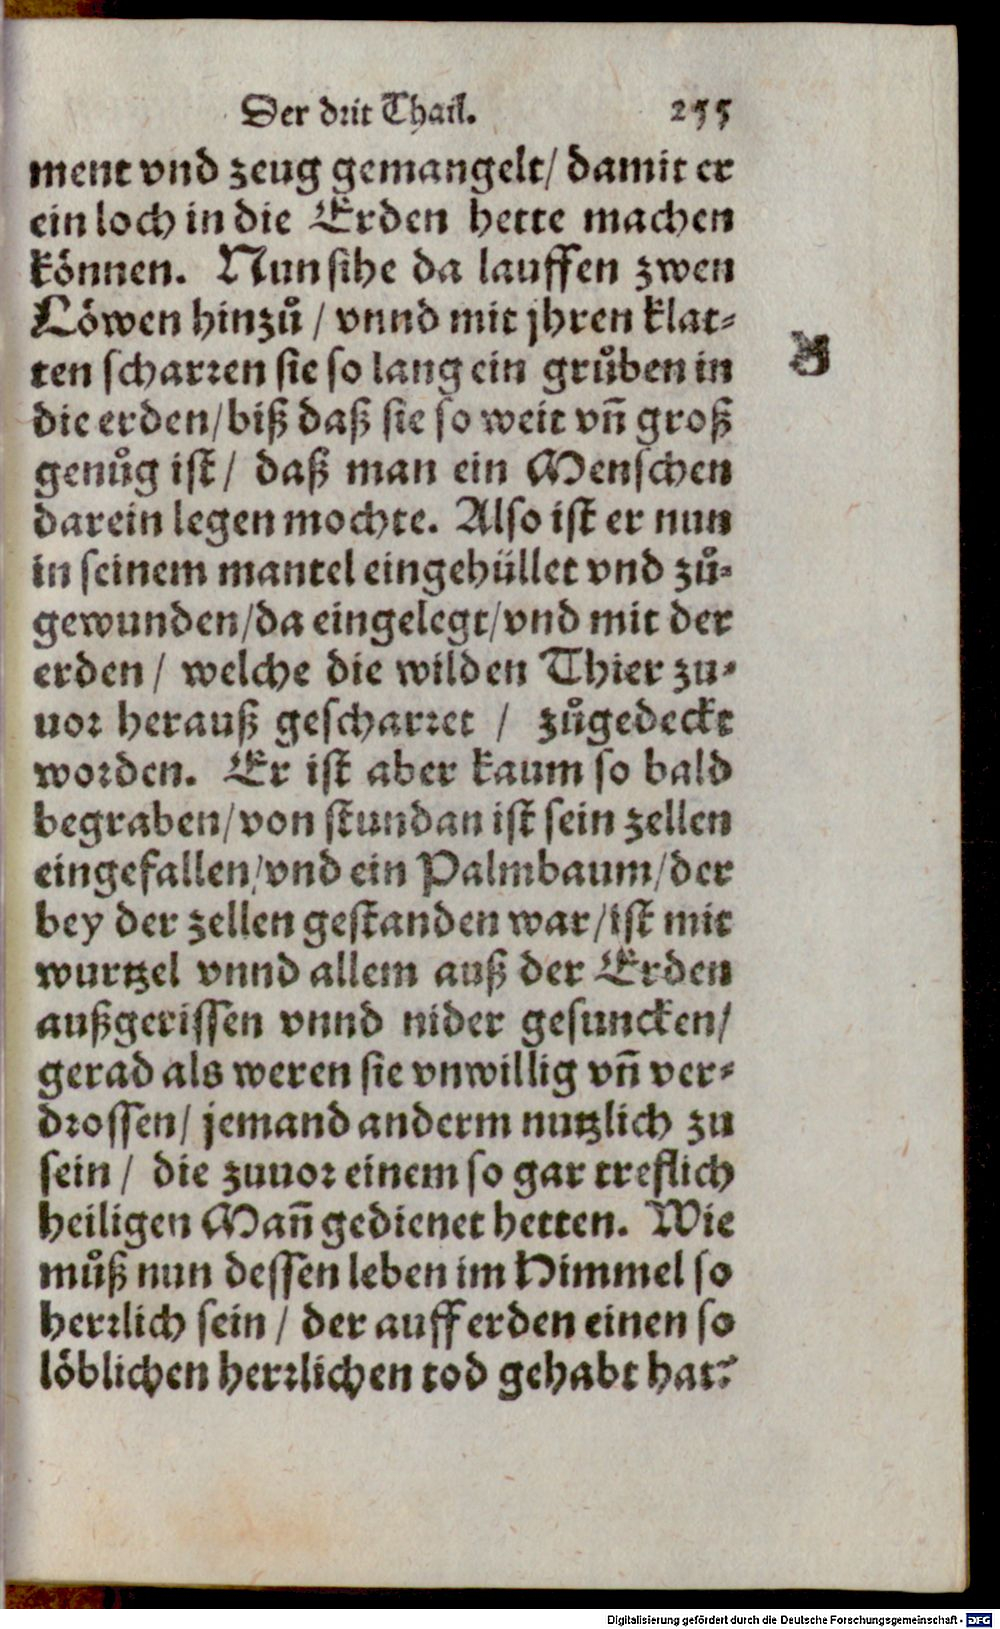 Der drit Thail. 255
ment vnd zeug gemangelt/ damit er
ein loch in die Erden hette machen
können. Nun sihe da lauffen zwen
Löwen hinzů / vnnd mit jhren klat-
ten scharren sie so lang ein grůben in
die erden/biß daß sie so weit vñ groß
genůg ist/ daß man ein Menschen
darein legen mochte. Also ist er nun
in seinem mantel eingehüllet vnd zů-
gewunden/da eingelegt/vnd mit der
erden/ welche die wilden Thier zu-
uor herauß gescharret / zůgedeckt
worden. Er ist aber kaum so bald
begraben/von stundan ist sein zellen
eingefallen/vnd ein Palmbaum/der
bey der zellen gestanden war/ist mit
wurtzel vnnd allem auß der Erden
außgerissen vnnd nider gesuncken/
gerad als weren sie vnwillig vñ ver-
drossen/ jemand anderm nutzlich zu
sein/ die zuuor einem so gar treflich
heiligen Mañ gedienet hetten. Wie
můß nun dessen leben im Himmel so
herrlich sein/ der auff erden einen so
löblichen herrlichen tod gehabt hat?
Digitalisierung gefördert durch die Deutsche Forschungsgemeinschaft - DFG